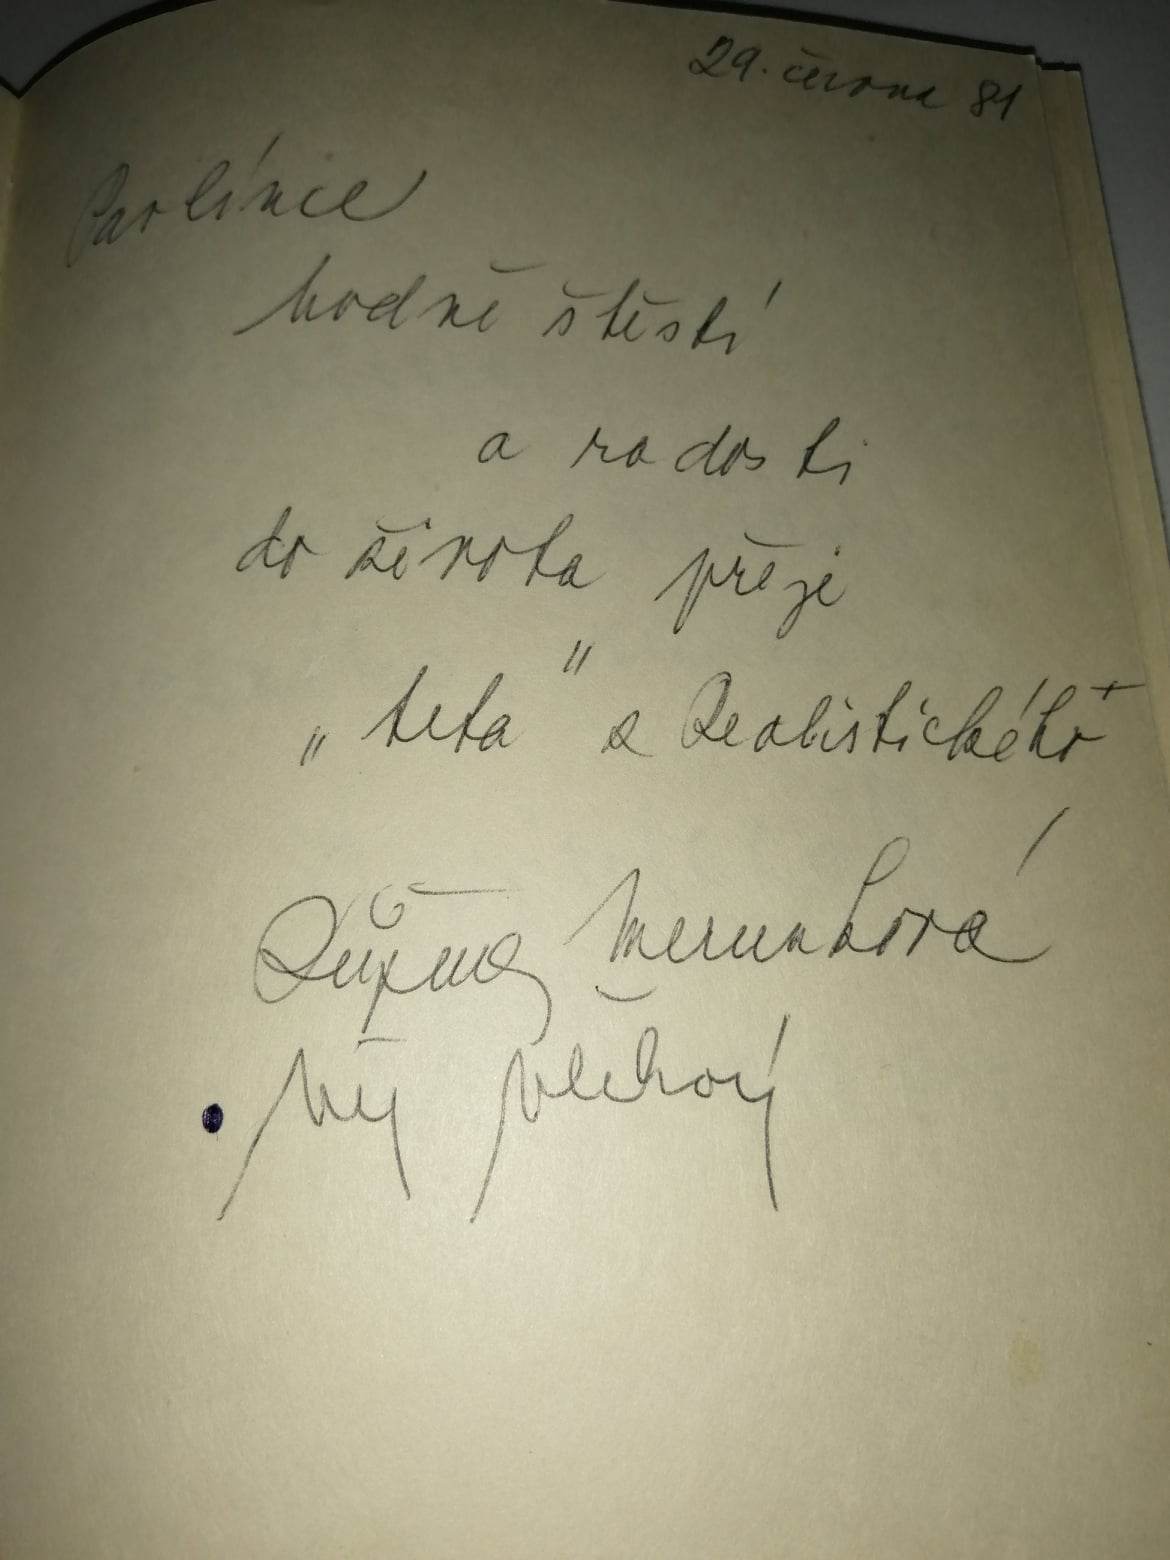 29. června 81
Pavlínce
hodně štěstí
a radosti
do života přeje
„teta" z Realistického
Růžena Merunková